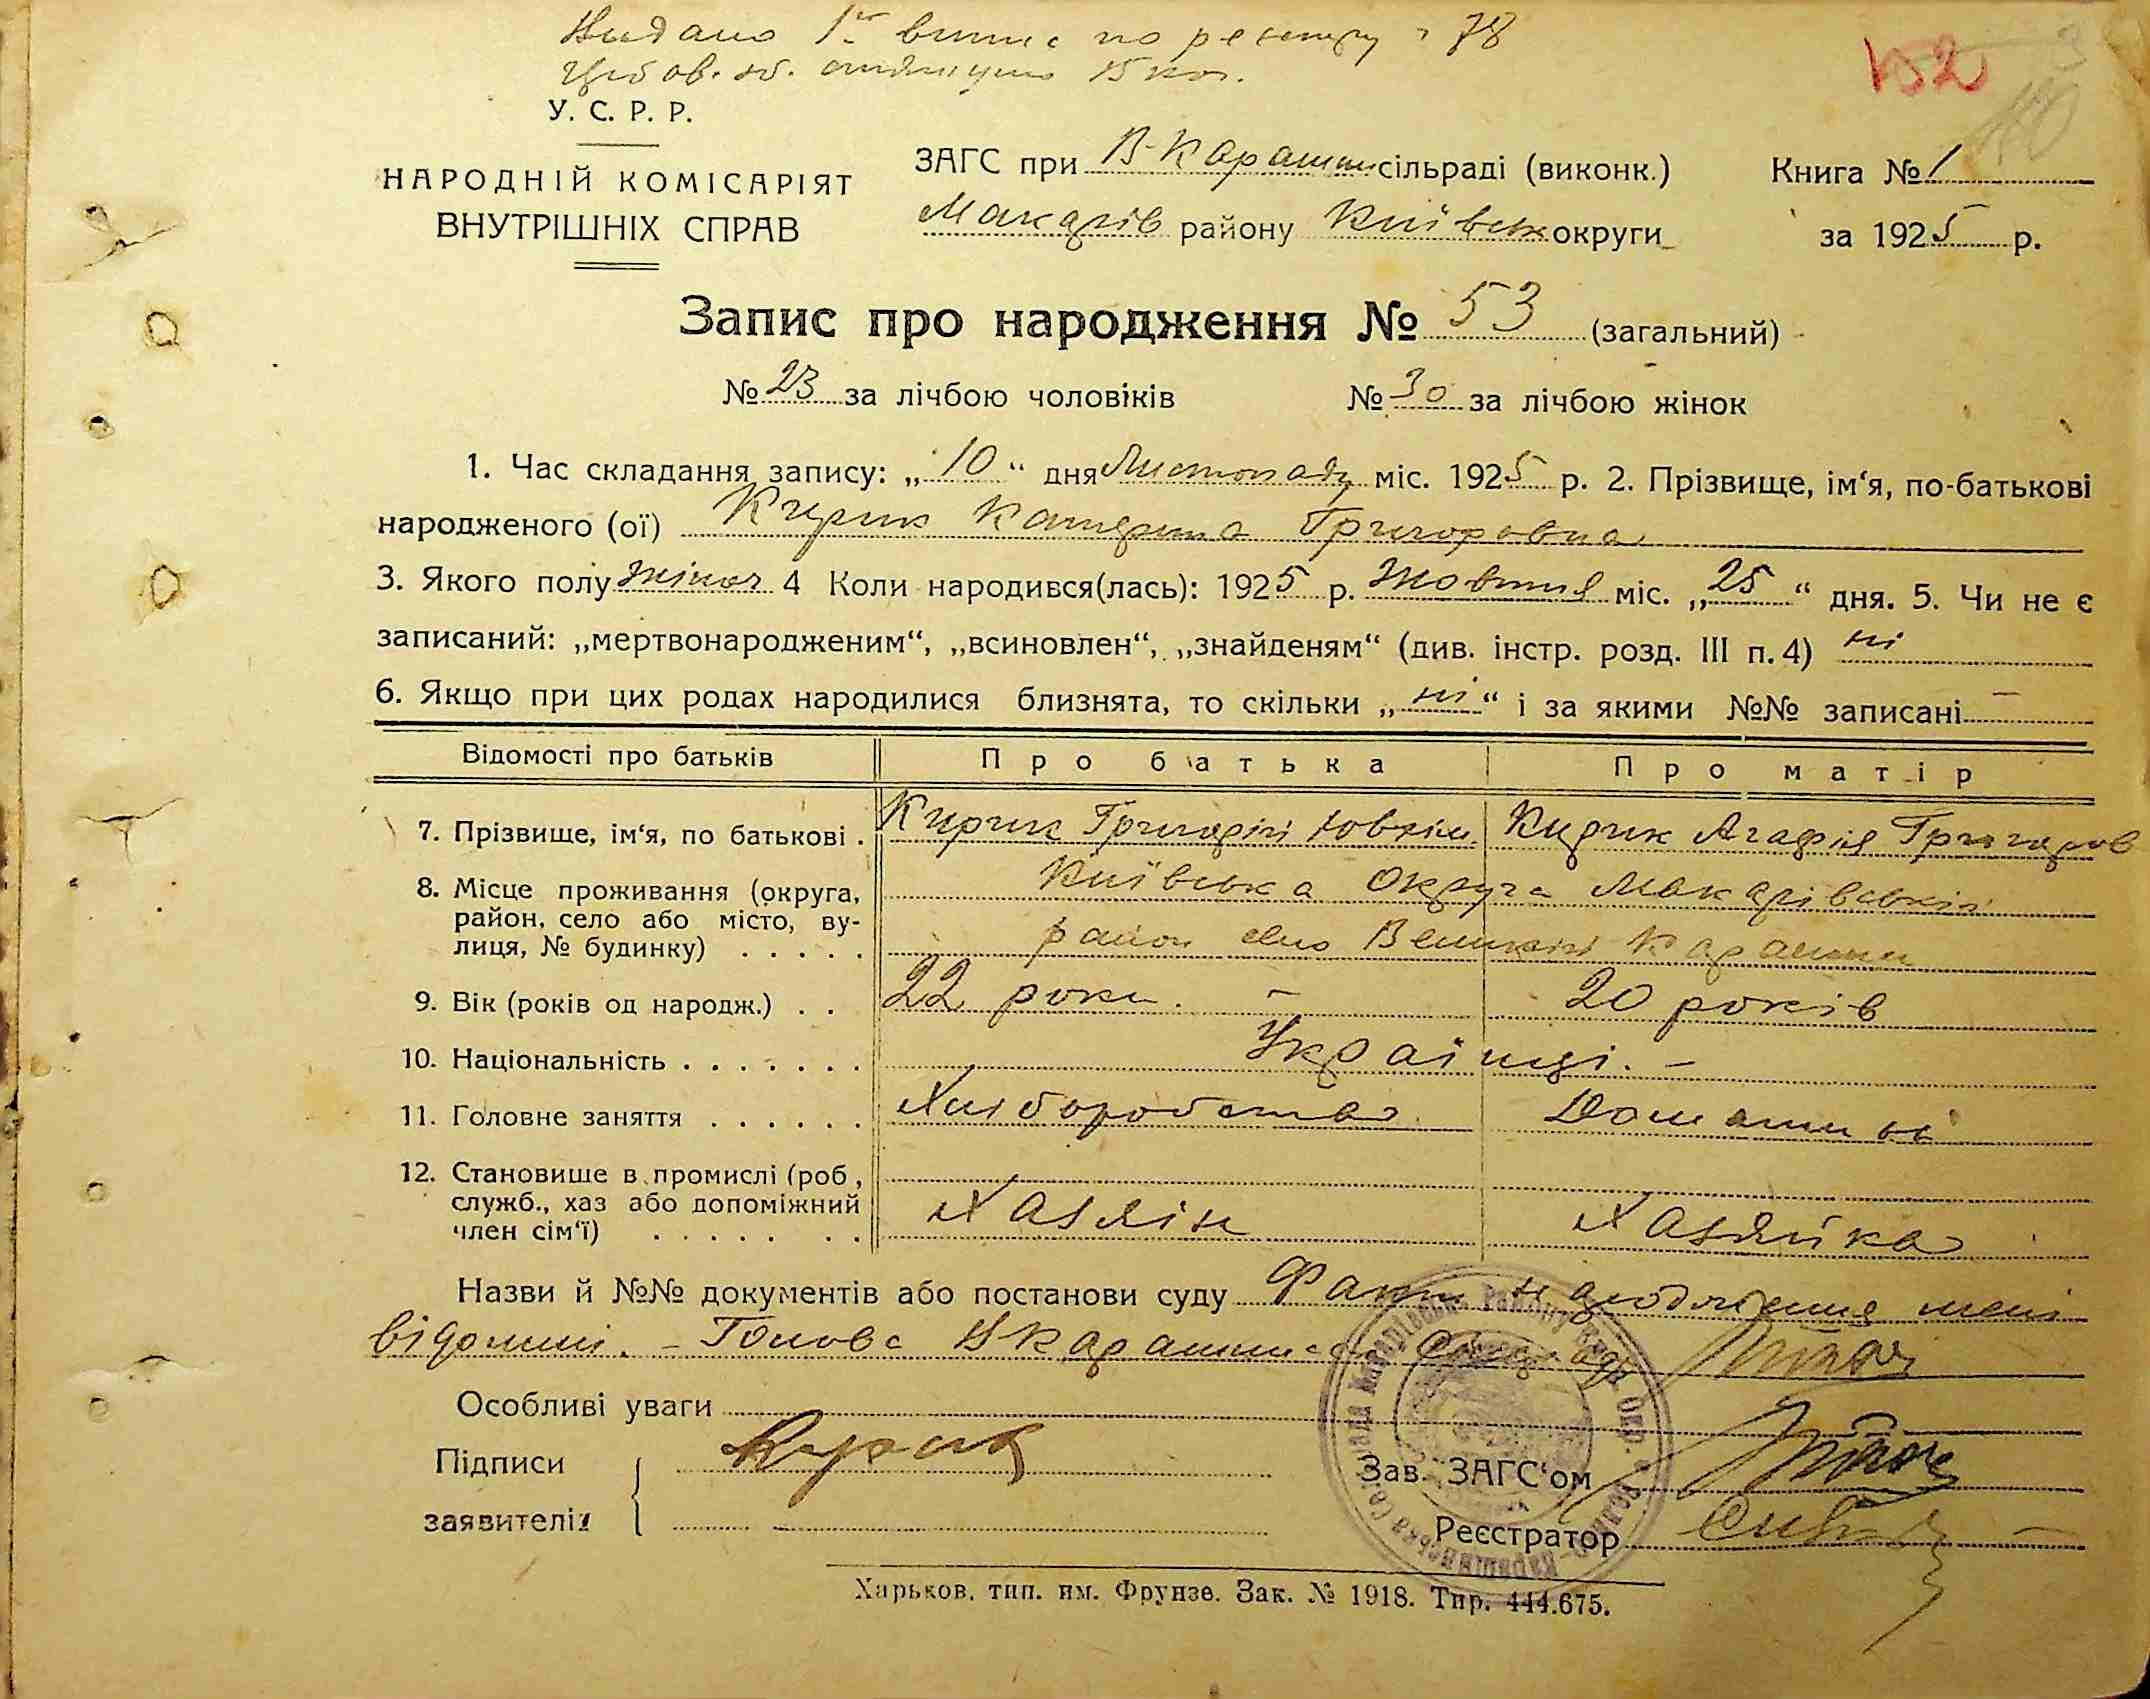 Видано 1й витяг по реєстру № 78
15 коп.
152
У. С. Р. Р.
НАРОДНІЙ КОМІСАРІЯТ
ВНУТРІШНІХ СПРАВ
ЗАГС при В-Карашин сільраді (виконк.)
Макарів району Київськ округи
Книга № 1
за 1925 р.
Запис про народження № 53 (загальний)
№ 23 за лічбою чоловіків № 30 за лічбою жінок
1. Час складання запису: „10“ дня Листопаду міс. 1925 р. 2. Прізвище, ім‘я, по-батькові
народженого (ої) Кирик Катерина Григоровна
3. Якого полу жіноч 4 Коли народився(лась): 1925 р. Жовтня міс. „25“ дня. 5. Чи не є
записаний: „мертвонародженим“, „всиновлен“, „знайденям“ (див. інстр. розд. III п. 4) ні
6. Якщо при цих родах народилися близнята, то скільки „ні“ і за якими №№ записані —
Відомості про батьків Про батька Про матір
7. Прізвище, ім‘я, по батькові . Кирик Григорій Ювхим. Кирик Агафія Григоров
8. Місце проживання (округа, Київська Округа Макарівський
район, село або місто, ву-
лиця, № будинку) . . . . . район село Великі Карашин
9. Вік (років од народж.) . . 22 роки. — 20 років
10. Національність . . . . . . . Українці. —
11. Головне заняття . . . . . . Хліборобство. Домашнє
12. Становише в промислі (роб,
служб., хаз або допоміжний
член сім‘ї) . . . . . . . Хазяїн Хазяйка
Назви й №№ документів або постанови суду Факт народження мені
відомий. — Голова В Карашинс. Сільради
Особливі уваги
Підписи Кирик Зав. ЗАГС‘ом
заявителів Реєстратор
Харьков, тип. им. Фрунзе. Зак. № 1918. Тир. 444.675.